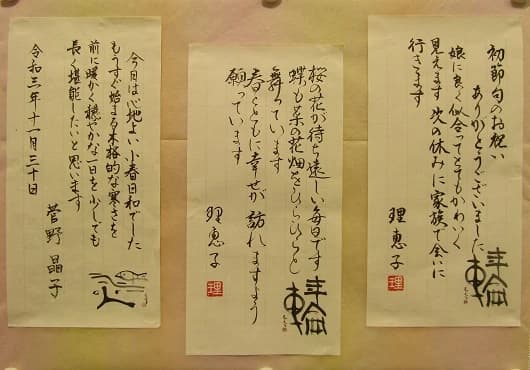 初節句のお祝い
ありがとうございました
娘に良く似合ってとてもかわいく
見えます 次の休みに家族で会いに
行きます
理恵子
理
輪
桜の花が待ち遠しい毎日です
蝶も菜の花畑をひらひらと
舞っています
春とともに幸せが訪れますよう
願っています
理恵子
理
輪
今日は心地よい小春日和でした
もうすぐ始まる本格的な寒さを
前に暖かく穏やかな一日を少しでも
長く堪能したいと思います
令和三年十一月三十日
菅野晶子